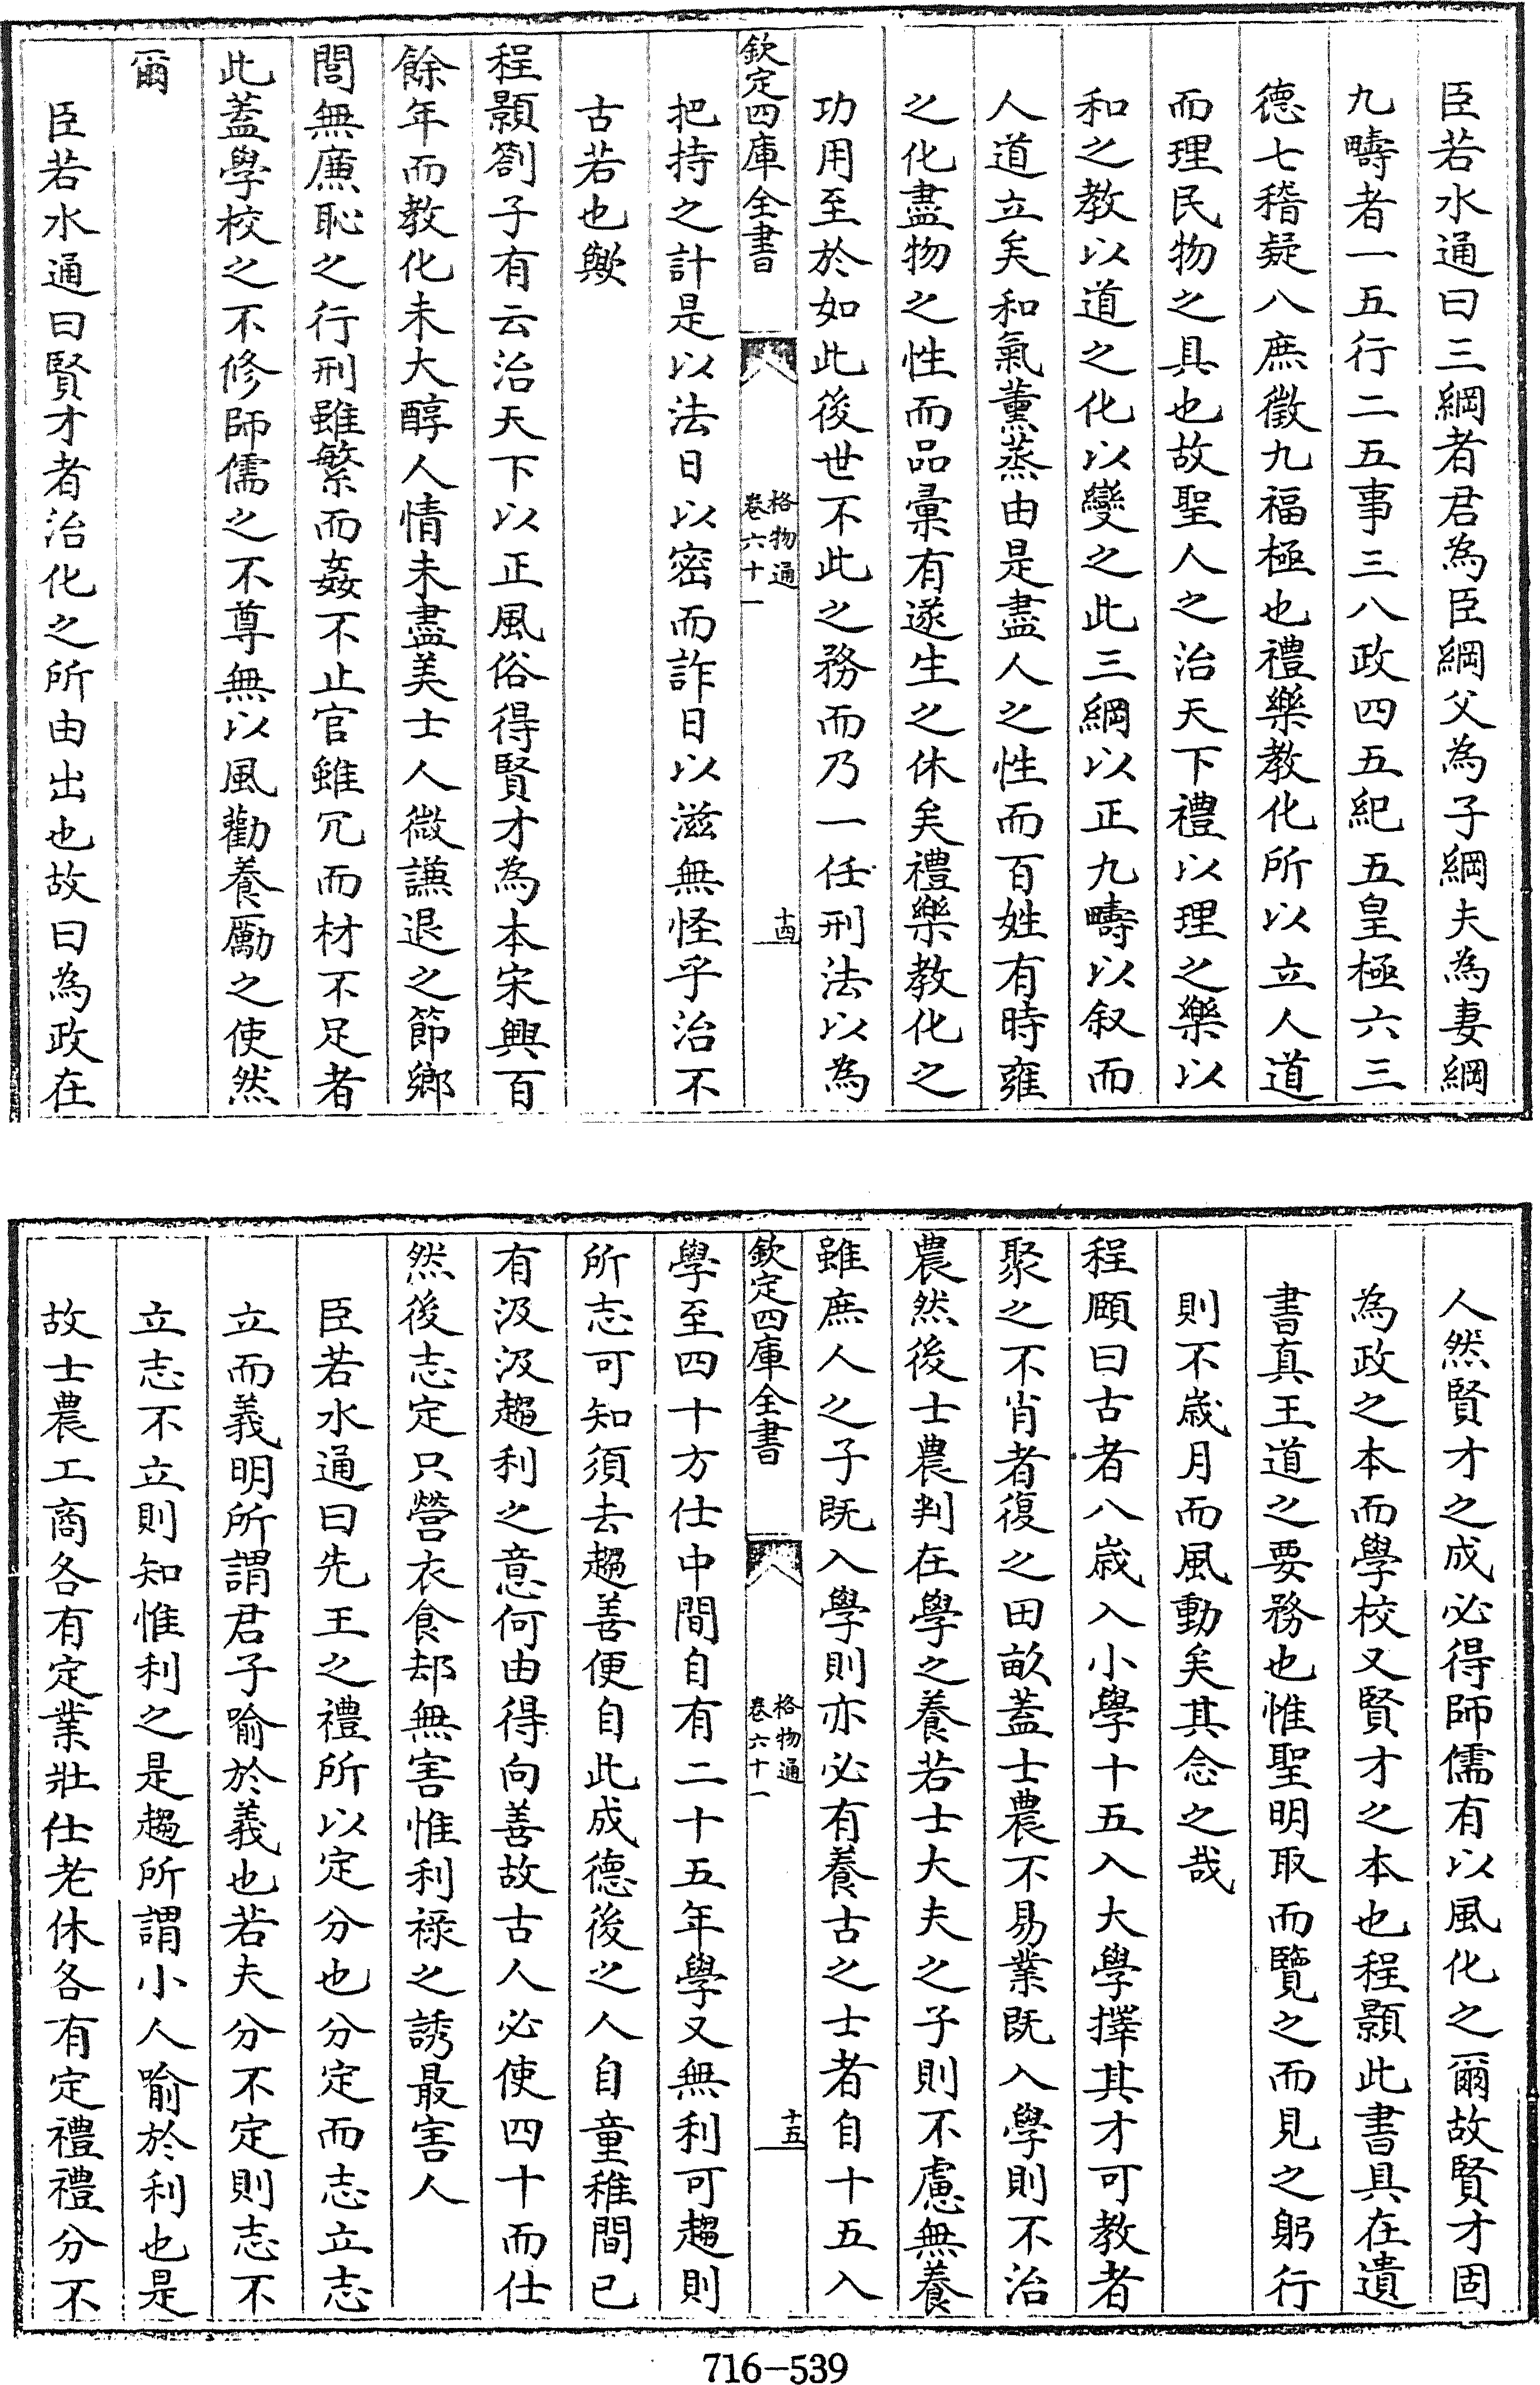 臣若水通曰三綱者君為臣綱父為子綱夫為妻綱
九疇者一五行二五事三八政四五紀五皇極六三
德七稽疑八庶徵九福極也禮樂教化所以立人道
而理民物之具也故聖人之治天下禮以理之樂以
和之教以道之化以變之此三綱以正九疇以叙而
人道立矣和氣薰蒸由是盡人之性而百姓有時雍
之化盡物之性而品彙有遂生之休矣禮樂教化之
功用至於如此後世不此之務而乃一任刑法以為
欽定四庫全書
格物通
卷六十一
十四
把持之計是以法日以密而詐日以滋無怪乎治不
古若也歟
程顥劄子有云治天下以正風俗得賢才為本宋興百
餘年而教化未大醇人情未盡美士人微謙退之節鄉
閭無廉恥之行刑雖繁而姦不止官雖冗而材不足者
此蓋學校之不修師儒之不尊無以風勸養勵之使然
爾
臣若水通曰賢才者治化之所由出也故曰為政在
人然賢才之成必得師儒有以風化之爾故賢才固
為政之本而學校又賢才之本也程顥此書具在遺
書真王道之要務也惟聖明取而覽之而見之躬行
則不歳月而風動矣其念之哉
程頤曰古者八歳入小學十五入大學擇其才可教者
聚之不肖者復之田畝蓋士農不易業既入學則不治
農然後士農判在學之養若士大夫之子則不慮無養
雖庶人之子既入學則亦必有養古之士者自十五入
欽定四庫全書
格物通
卷六十一
十五
學至四十方仕中間自有二十五年學又無利可趨則
所志可知須去趨善便自此成德後之人自童稚間已
有汲汲趨利之意何由得向善故古人必使四十而仕
然後志定只營衣食却無害惟利祿之誘最害人
臣若水通曰先王之禮所以定分也分定而志立志
立而義明所謂君子喻於義也若夫分不定則志不
立志不立則知惟利之是趨所謂小人喻於利也是
故士農工商各有定業壯仕老休各有定禮禮分不
716-539